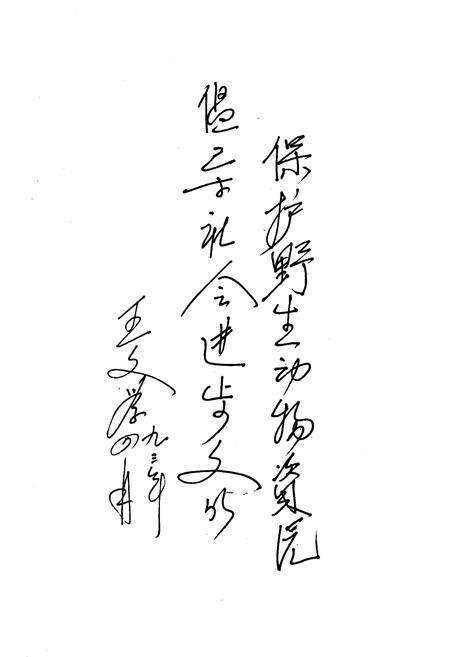 保护野生动物资源
促工作社会进步文明
王文学
九三年
四月